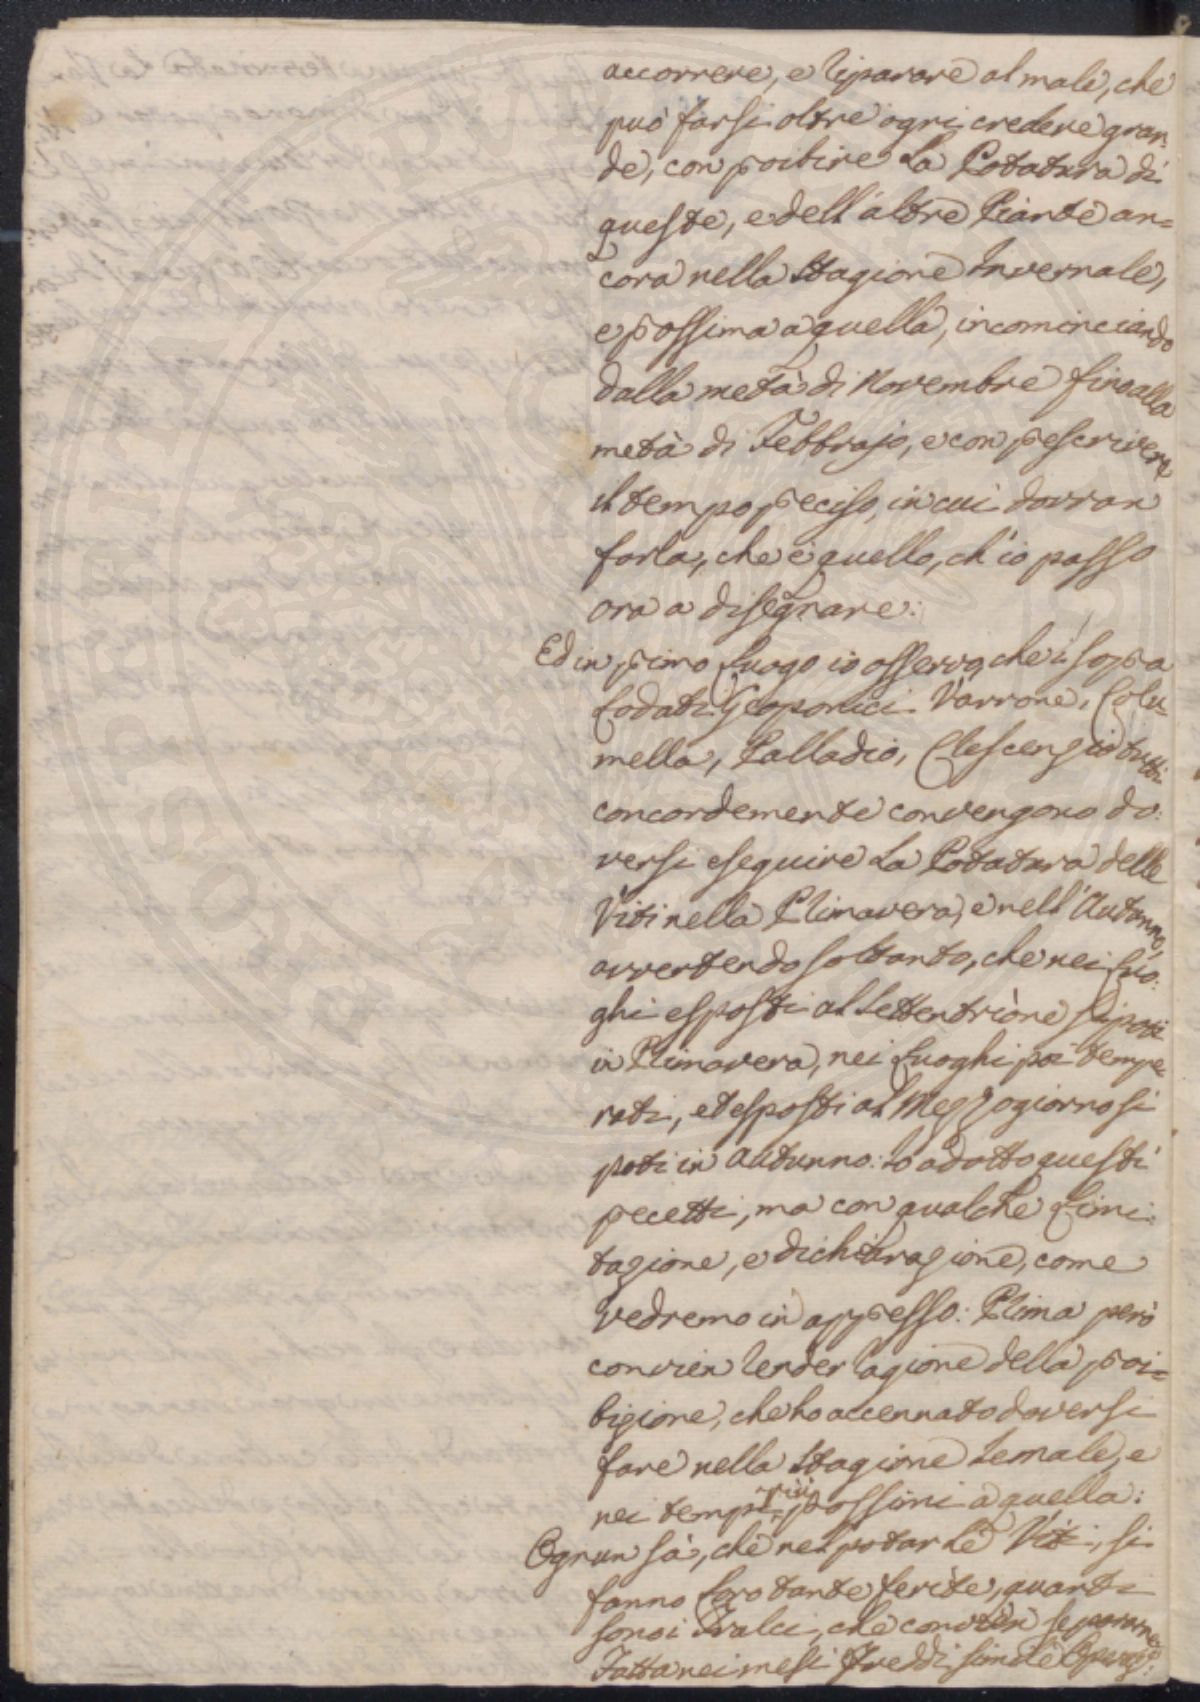 accorrere, e riparare al male, che
può farsi oltre ogni credere gran:
de, con proibire la Potatura di
queste, e dell'altre Piante an=
cora nella Stagione Invernale,
e prossima a quella, incominciando
dalla metà di Novembre fino alla
metà di Febbrajo, e con prescrivere
il tempo preciso, in cui dovran
farla, che è quello, ch'io passo
ora a disegnare:
Ed in primo luogo io osservo, che i sopra
Lodati Geoponici Varrone, Colu=
mella, Palladio, Crescenzio tutti
concordemente convengono do:
versi eseguire la Potatura delle
Viti nella Primavera, e nell'Autunno,
avvertendo soltanto, che nei Luo:
ghi esposti al Settentrione si poti
in Primavera, nei Luoghi poi tempe
rati, ed esposti al Mezzogiorno si
poti in Autunno: Io adotto questi
precetti, ma con qualche Limi:
tazione, e dichiarazione, come
vedremo in appresso: Prima però
convien render ragione della proi=
bizione, che ho accennato doversi
fare nella Stagione Jemale, e
nei tempi più prossimi a quella:
Ognun sà, che nel potar le Viti, si
fanno loro tante ferite, quanti
sono i Tralci, che convien separarne:
Fatta nei mesi freddi simile Operaz: